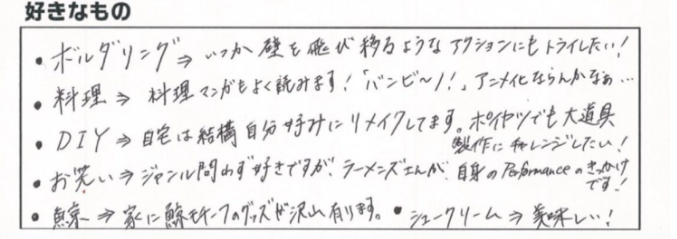 好きなもの
・ボルダリング⇒いつか壁を飛び移るようなアクションにもトライしたい!
・料理⇒料理マンガもよく読みます!「バンビ〜ノ!」アニメ化ならんかなぁ…
・DIY⇒自宅は結構自分好みにリメイクしてます。ポイヤツでも大道具
製作にチャレンジしたい!
・お笑い⇒ジャンル問わず好きですが、ラーメンズさんが、自身のPerformanceのきっかけ
です!
・鯨⇒家に鯨モチーフのグッズが沢山有ります。・シュークリーム⇒美味しい!